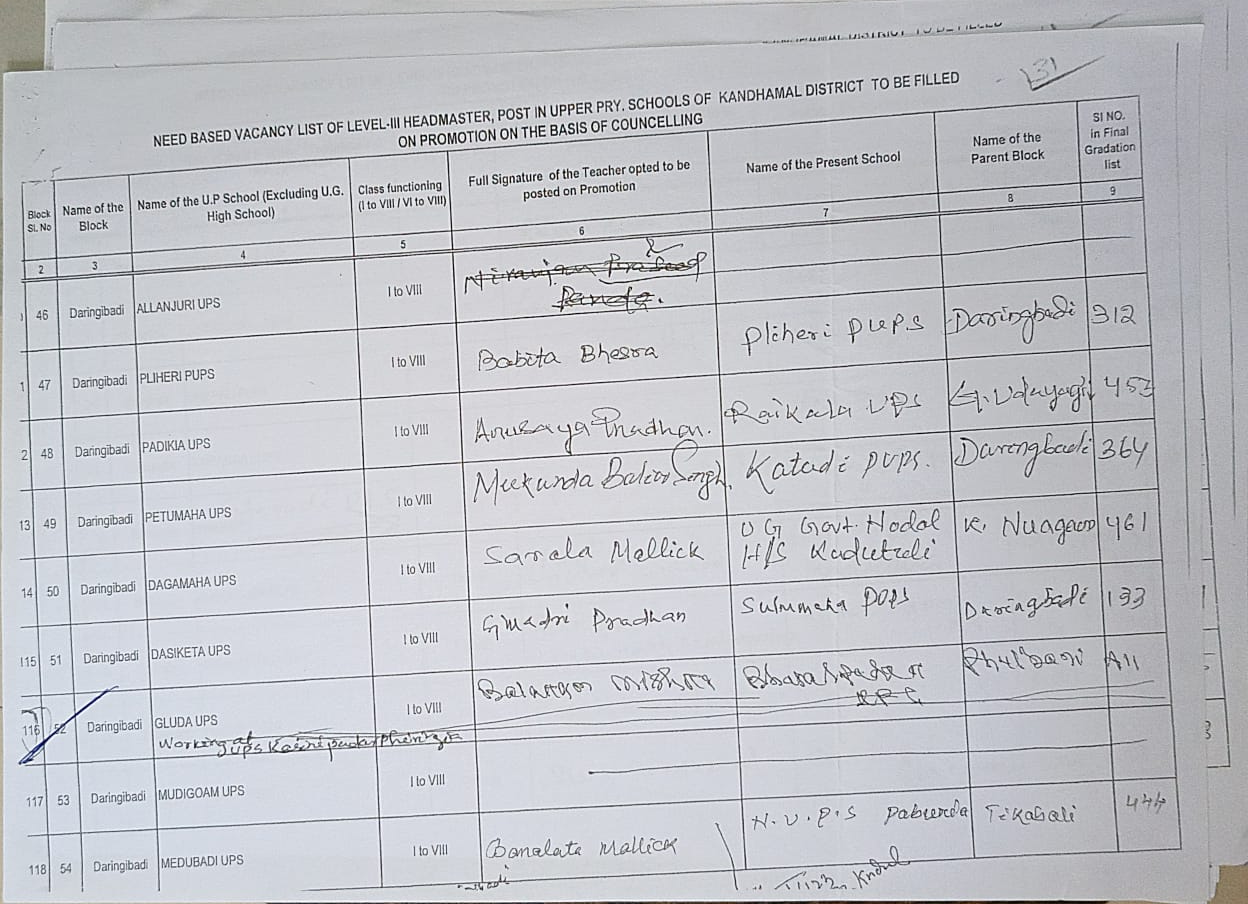 131
NEED BASED VACANCY LIST OF LEVEL-III HEADMASTER, POST IN UPPER PRY. SCHOOLS OF KANDHAMAL DISTRICT TO BE FILLED
ON PROMOTION ON THE BASIS OF COUNCELLING
Block Sl. No | Name of the Block | Name of the U.P School (Excluding U.G. High School) | Class functioning (I to VIII / VI to VIII) | Full Signature of the Teacher opted to be posted on Promotion | Name of the Present School | Name of the Parent Block | Sl NO. in Final Gradation list
2 3 4 5 6 7 8 9
46 Daringibadi ALLANJURI UPS I to VIII Niranjan
1 47 Daringibadi PLIHERI PUPS I to VIII Babita Bhesra Pliheri PUPS Daringbadi 312
2 48 Daringibadi PADIKIA UPS I to VIII Anusaya Pradhan. Raikala UPS G. Udayagiri 453
13 49 Daringibadi PETUMAHA UPS I to VIII Mukunda Singh. Katadi PUPS. Daringbadi 364
14 50 Daringibadi DAGAMAHA UPS I to VIII Sarala Mallick UG Govt. Nodal H/S K. Nuagaon 461
115 51 Daringibadi DASIKETA UPS I to VIII Pradhan PUPS Daringbadi 133
116 52 Daringibadi GLUDA UPS I to VIII Balaram Mishra Phulbani
Working at UPS
117 53 Daringibadi MUDIGOAM UPS I to VIII
118 54 Daringibadi MEDUBADI UPS I to VIII Banalata Mallick N.U.P.S Paburia Tikabali 444